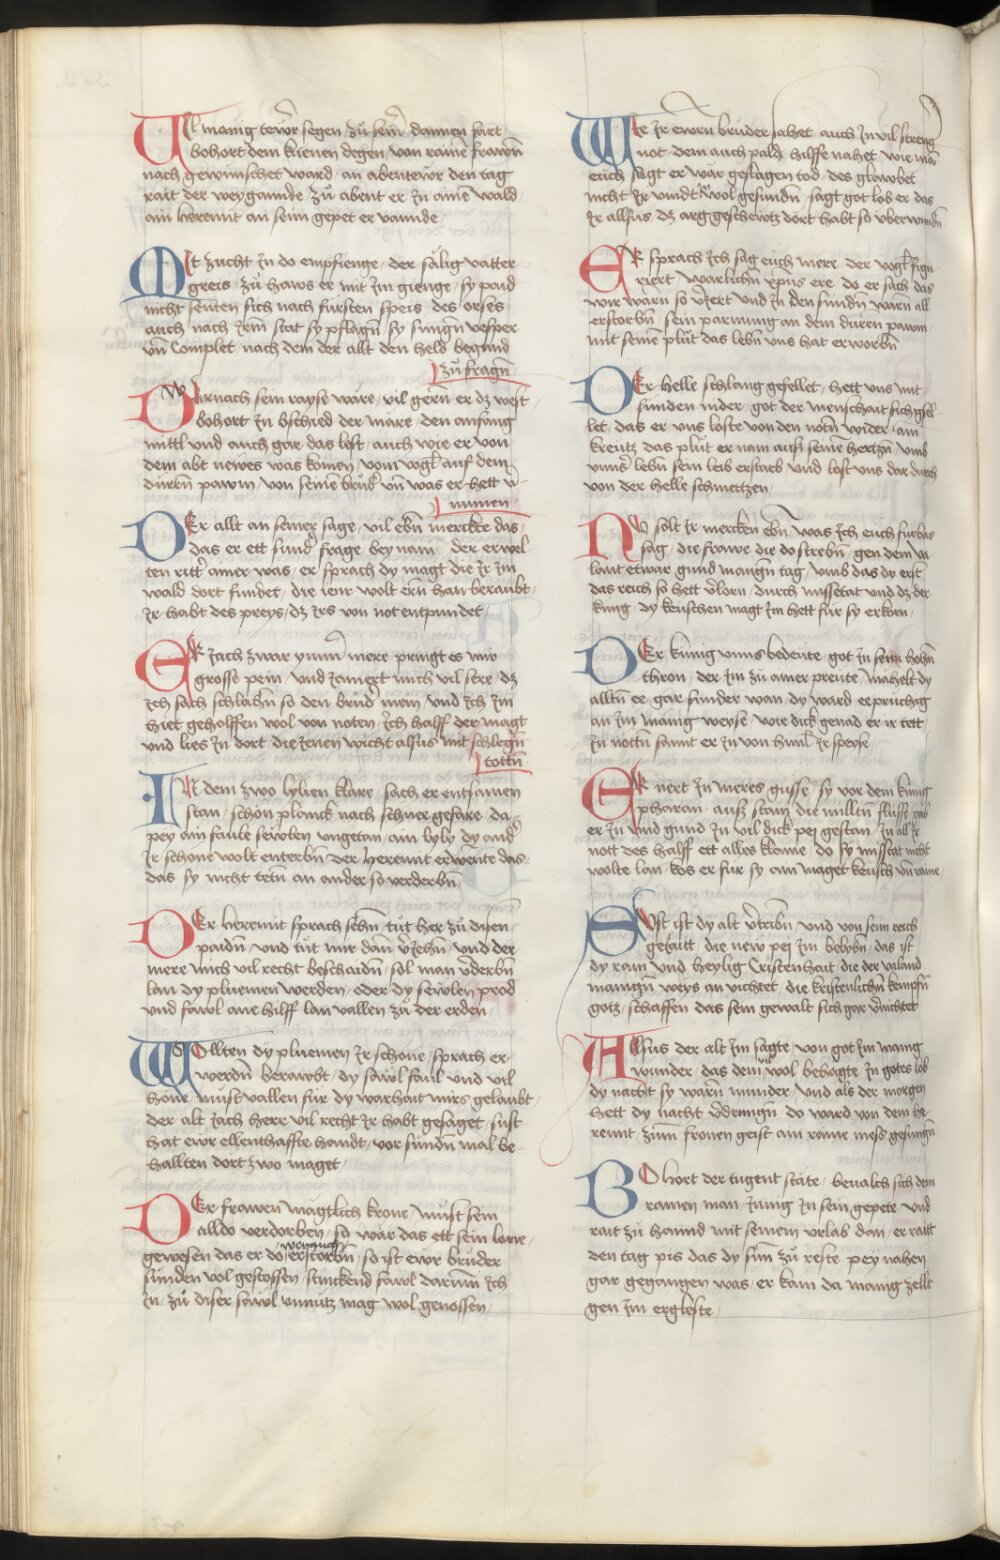 Vil manig tewr segen zů seim dannen fart
bohort dem küenen degen von raine frawen
nach gewunschet ward an abentewr den tag
rait der weygannde zů abent er In ainē wald
ain heremit an seim gepet er vannde
Mit zucht In do empfienge der sälig vatter
greis zů haws er mit Im gienge sy paid
nicht senten sich nach fürsten speis des orses
auch nach Irm stat sy pflagn sy sungn vesper
vn̄ Complet nach dem der allt den held begund
zů fragn
Warnach sein rayse wäre vil gern er dz west
bohort In bschied der märe den anfang
mittl und auch gar das lest auch wie er von
dem abt newes was komen vom vogl auf dem
dürrn pawm von seinē brud' vn̄ was er hett v'
numen
Der allt an seiner sage vil ebn̄ merckte das
das er ett sund' frage bey nam der erwel
ten ritt' ainer was er sprach dy magt die Ir Im
wald dort fundet die iene wolt ern han beraubt
Ir habt des preys dz Irs von not entpundet
Er Iach zwar ymm' mere pringt es mir
grosse pein und Iamert mich vil sere dz
Ich sach schlahn̄ so den brud' mein und Ich Im
hiet geholffen wol von noten Ich halff der magt
und lies In dort die Ienen wicht alsus mit schlegn̄
tottn̄
Mit dem zwo lylien klare sach er entsamen
stan schön planck nach schnee gefare da
pey ain faule sewlen ungetan ain lyly dy and'
Ir schone wolt enterbn̄ der heremit erwente das
das sy nicht tetn̄ an ander so verderbn̄
Der heremit sprach sehn̄ tůt her zů disen
paidn̄ und tůt mir dan v'Iehn̄ und der
mere mich vil recht beschaidn̄ sol man v'derbn̄
lan dy pluemen werden oder dy sewlen prod
und fawl ane hilff lan vallen zů der erden
Wollten dy pluemen Ir schöne sprach er
werdn̄ berawbt dy sawl faul und vil
höne můst vallen für dy warhait mirs gelaubt
der alt Iach herr vil recht Ir habt gesaget sust
hat ewr ellenthaffte handt vor sündn̄ mal be
hallten dort zwo maget
Der frawen mägtlich krone můst sein
alldo verdorben so wär das ett sein lone
gewesen das er do erstorbn̄ so ist ewr brüder
sünden vol gestossen stinckend fawl darumb Ich
In zů diser sawl unnütz mag wol genossen
Wie Ir ewrn bruder sahet auch In vil streng
not dem auch pald hilffe nahet wie man
euch sagt er wär geslagen tod des glawbet
nicht Ir vindt In wol gesundn̄ sagt got lob er das
Ir allsus dz arg geschetz dort habt so überwundn̄
Er sprach Ich sag euch mere der vogl figu
riert warlichn xp̄us ere do er sach das
wir warn so v'Iert und In den sundn̄ warn all
erstorbn̄ sein parmung an dem dürrn pawm
mit seinē plůt das lebn̄ uns hat erworbn̄
Der helle schlang gefellet hett uns mit
sünden nider got der menschait sich gsel
let das er uns loste von den nötn̄ wider am
kreutz das plůt er nam auss seinē hertzn̄ umb
unns' lebn̄ sein leib erstarb und lost uns dar durch
von der helle schmertzen
Nu solt Ir mercken ebn̄ was Ich euch fürbas
sag die frawe die do strebn̄ gen dem va
lant etwar gund mangn̄ tag umb das dy erst
das reich so hett v'lorn durch missetat und dz der
kůng dy keuschen magt Im hett für sy erkorn
Der kůnig unns bedeute got In seim hohn̄
thron der Im zů ainer preute mahelt dy
alltn̄ ee gar sunder wan dy ward ee prüchig
an Im manig weyse wie dick genad er ir tett
In nottn̄ sannt er In von himl Ir speyse
Er nert In meres gusse sy vor dem kůng
pharan auss stain die milltn̄ flüsse gab
er In und gund In vil dick pey gestan In all Ir
nott des halff ett alles klaine do sy missetat nicht
wolte lan kos er für sy ain maget keusch vn̄ raine
Sust ist dy alt v'tribn̄ und von seim reich
geschaitt die new pey Im belybn̄ das ist
dy rain und heylig Cristenhait die der valand
manign̄ weys an vichtet die kristenlichn̄ kempfn̄
gotz schaffen das sein gewalt sich gar v'nichtet
Allsus der alt Im sagte von got Im manig
wunder das dem vil wol behagte In gotes lob
dy nacht sy warn munder und als der morgen
hett dy nacht v'drungn̄ do ward von dem he
remit zům fronen geist ain raine mess gesungn̄
Bohort der tugent stäte bevalch sich dem
rainen man Innig In sein gepete und
rait zů hannd mit seinem urlab dan er raitt
den tag pis das dy sun zů reste pey nahen
gar gegangen was er kam da manig zellt
gen Im ergleste